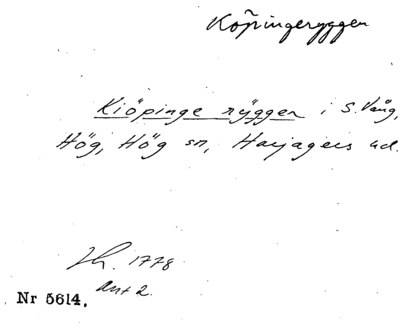 Köpingeryggen
Kiöpinge rÿggen i S. Vång,
Hög, Hög sn, Harjagers hd.
Lh. 1778
akt 2.
Nr 5614.